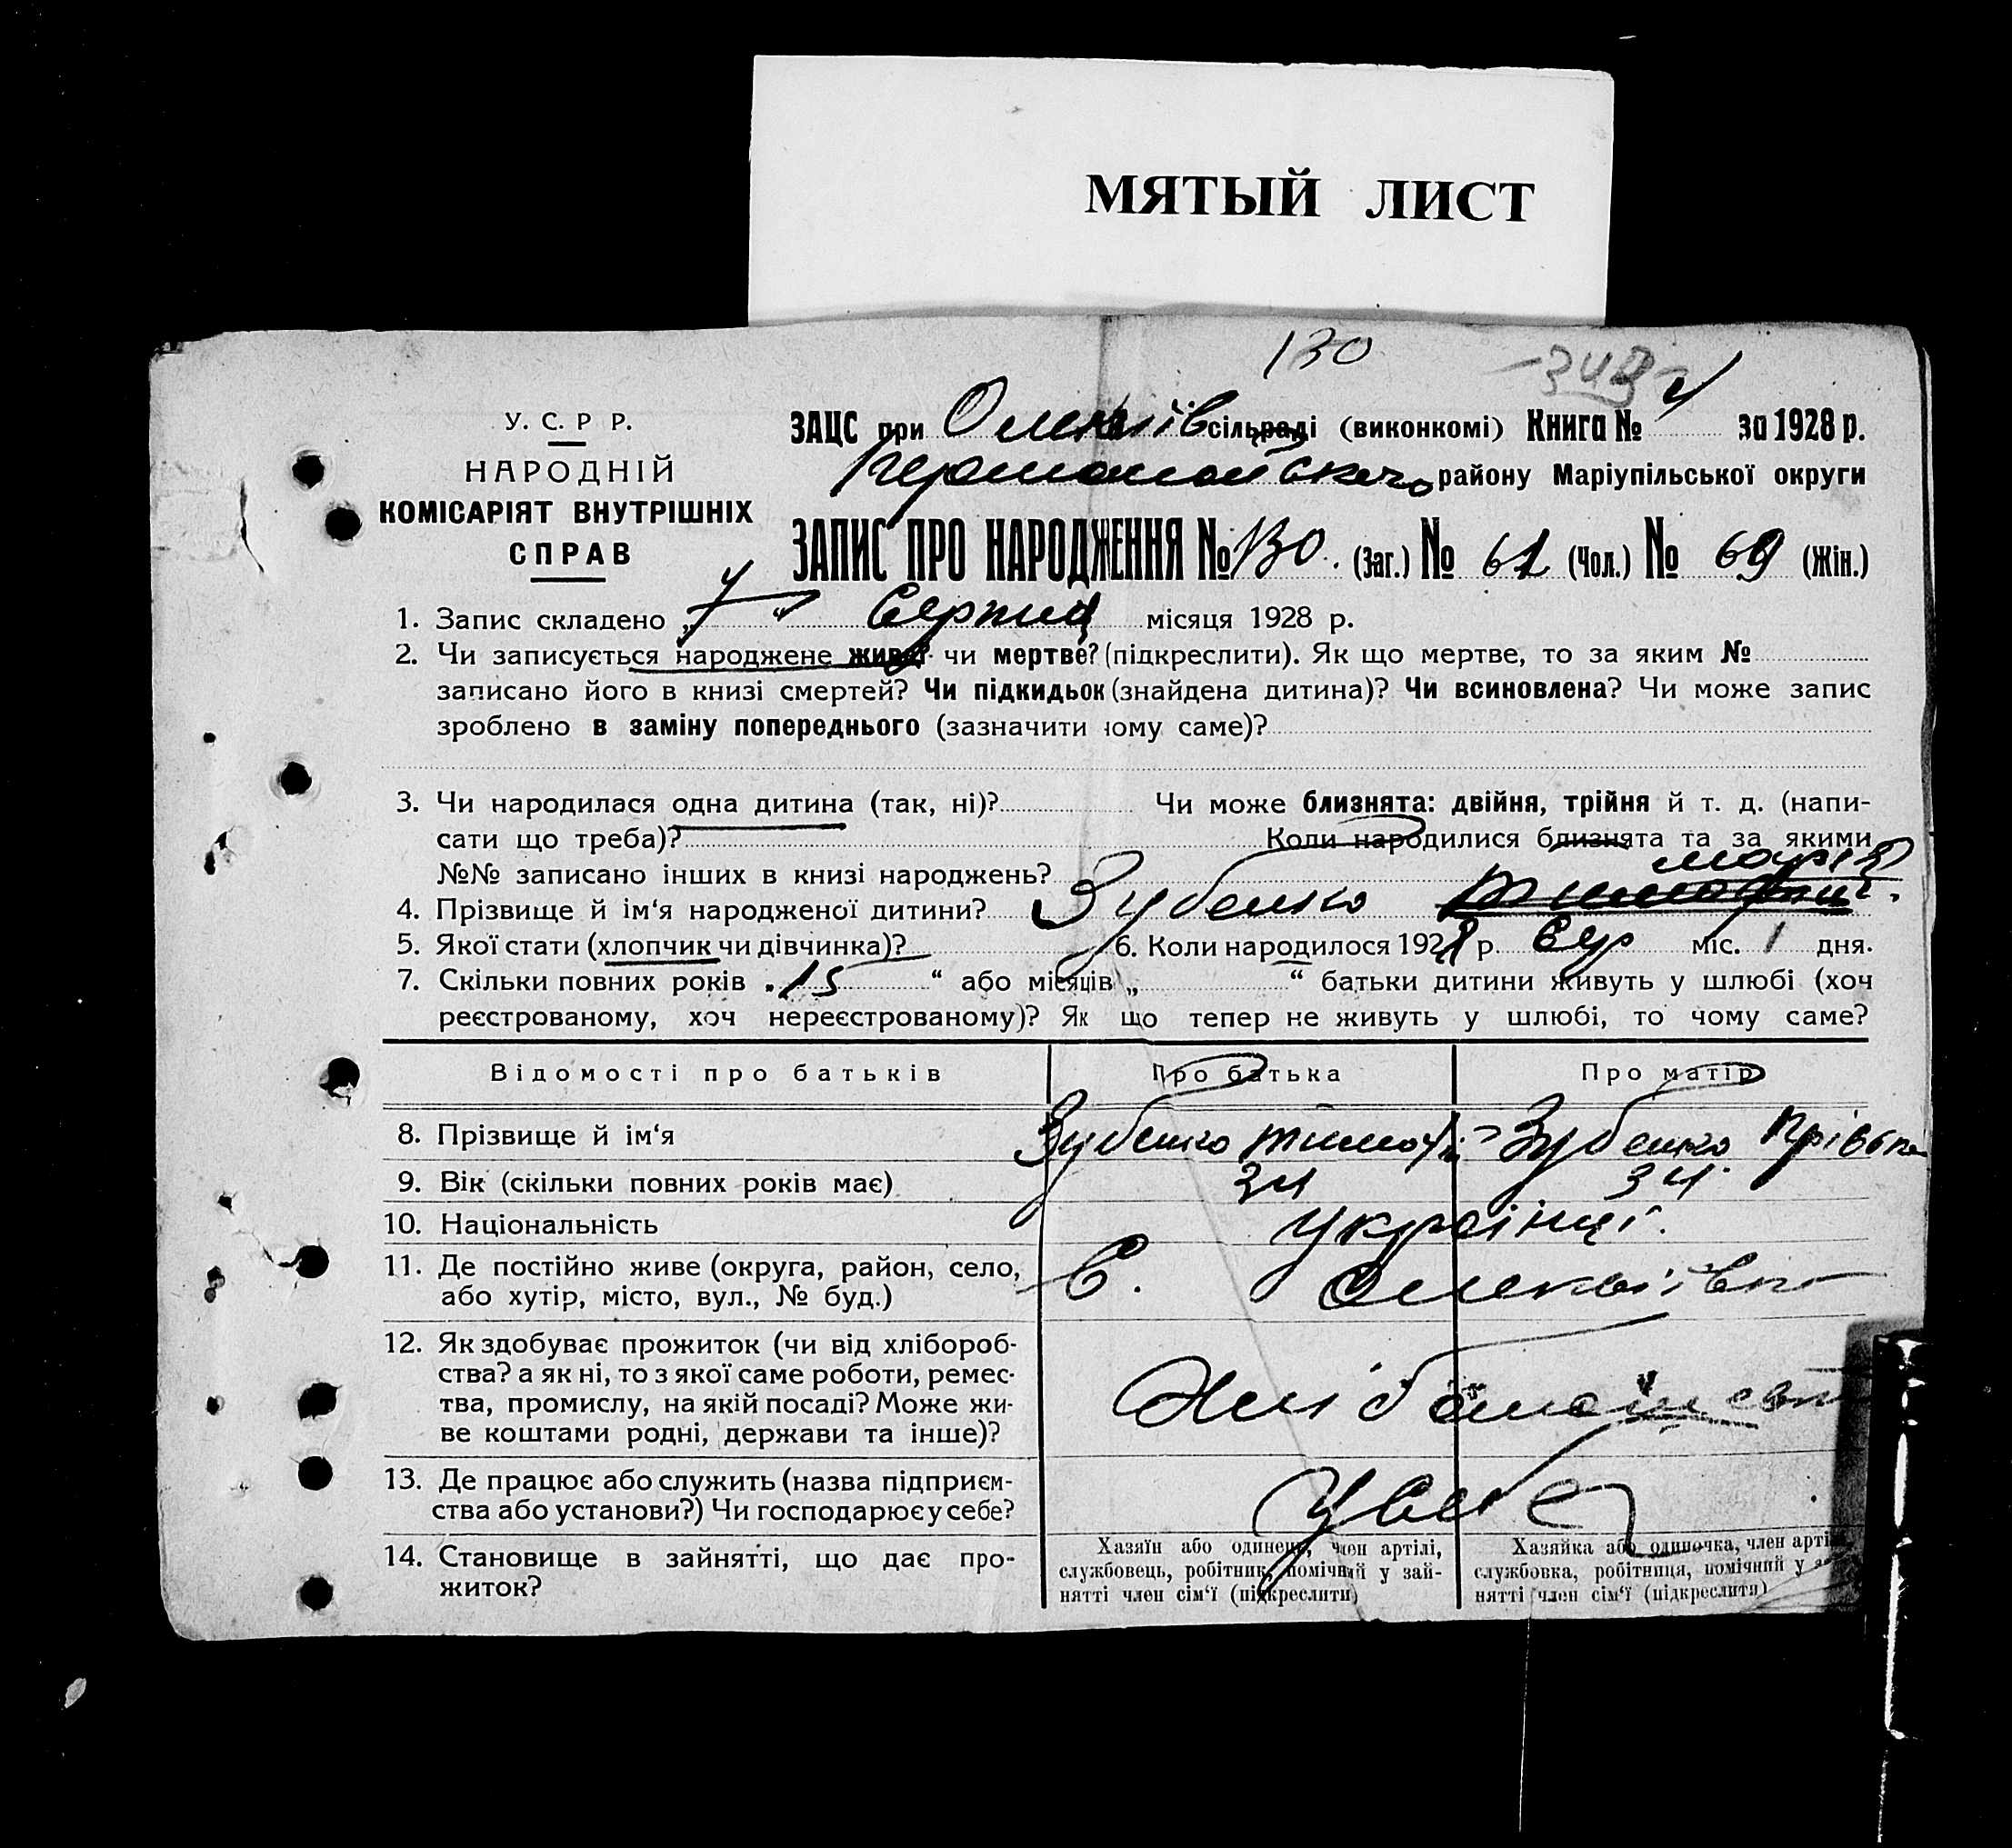 МЯТЫЙ ЛИСТ
130
У. С. Р Р.
НАРОДНІЙ
КОМІСАРІЯТ ВНУТРІШНІХ
СПРАВ
ЗАЦС при Олексіїв сільраді (виконкомі) Книга № 4 за 1928 р.
району Маріупільської округи
ЗАПИС ПРО НАРОДЖЕННЯ № 130. (Заг.) № 61 (Чол.) № 69 (Жін.)
1. Запис складено „ 7 “ Серпня місяця 1928 р.
2. Чи записується народжене живе чи мертве? (підкреслити). Як що мертве, то за яким №
записано його в книзі смертей? Чи підкидьок (знайдена дитина)? Чи всиновлена? Чи може запис
зроблено в заміну попереднього (зазначити чому саме)?
3. Чи народилася одна дитина (так, ні)? Чи може близнята: двійня, трійня й т. д. (напи-
сати що треба)? Коли народилися близнята та за якими
№№ записано інших в книзі народжень?
Марія
4. Прізвище й ім‘я народженої дитини? Зубенко
5. Якої стати (хлопчик чи дівчинка)? 6. Коли народилося 1928 р. Сер міс. 1 дня.
7. Скільки повних років „ 15 “ або місяців „ “ батьки дитини живуть у шлюбі (хоч
реєстрованому, хоч нереєстрованому)? Як що тепер не живуть у шлюбі, то чому саме?
Відомості про батьків Про батька Про матір
8. Прізвище й ім‘я Зубенко Тимофі Зубенко
9. Вік (скільки повних років має) 34 34
10. Національність Українці.
11. Де постійно живе (округа, район, село,
або хутір, місто, вул., № буд.) С. Олексіївка
12. Як здобуває прожиток (чи від хлібороб-
ства? а як ні, то з якої саме роботи, ремес-
тва, промислу, на якій посаді? Може жи-
ве коштами родні, держави та інше)?
13. Де працює або служить (назва підприєм-
ства або установи?) Чи господарює у себе? У себе
14. Становище в зайнятті, що дає про-
житок?
Хазяїн або одинець, член артілі,
службовець, робітник, помічний у зай-
нятті член сім‘ї (підкреслити)
Хазяйка або одиночка, член арті
службовка, робітниця, помічний у
нятті член сім‘ї (підкреслити)